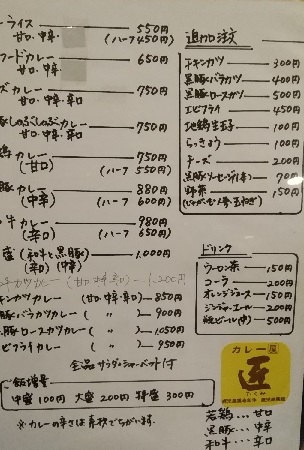 ーライス ― 550円
甘口・中辛 (ハーフ450円)
フードカレー ― 650円
甘口・中辛
ズカレー ― 750円
甘口・中辛・辛口
豚しゃぶしゃぶカレー ― 750円
鶏カレー ― 750円
(甘口) (ハーフ 550円)
豚カレー ― 880円
(中辛) (ハーフ 600円)
牛カレー ― 980円
(辛口) (ハーフ 650円)
盛 (和牛と黒豚) ― 1,000円
(辛口) (中辛)
牛カツカレー (甘口 中辛 辛口) ― 1,200円
キンカツカレー (甘口・中辛・辛口) ― 850円
豚バラカツカレー ( 〃 ) ― 900円
豚ロースカツカレー ( 〃 ) ― 1,050円
ビフライカレー ( 〃 ) ― 950円
全品サラダ・シャーベット付
ご飯増量
中盛100円 大盛200円 特盛300円
※カレーの辛さは素材でちがいます。
追加注文
チキンカツ ― 300円
黒豚バラカツ ― 400円
黒豚ロースカツ ― 500円
エビフライ ― 450円
地鶏生玉子 ― 100円
らっきょう ― 100円
チーズ ― 200円
黒豚ソーセージ(1本) 700
野菜 ― 150円
(じゃがいも・人参・玉ねぎ)
ドリンク
ウーロン茶 ― 150円
コーラ ― 200円
オレンジジュース ― 150円
ジンジャーエール ― 200円
瓶ビール(中) ― 500円
カレー屋
匠
たくみ
若鶏…甘口
黒豚…中辛
和牛…辛口